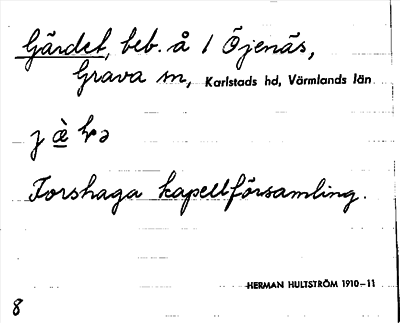 Gärdet, beb. å 1 Öjenäs,
Grava sn, Karlstads hd, Värmlands län
Forshaga kapellförsamling.
HERMAN HULTSTRÖM 1910–11
8